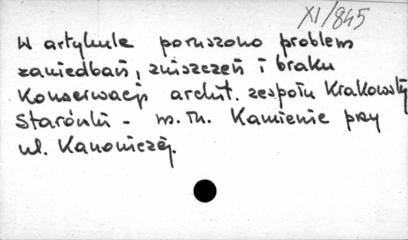 XI/845
W artykule poruszono problem
zaniedbań, zniszczeń i braku
Konserwacji archit. zespołu Krakowskiej
Starówki - m. in. Kamienic przy
ul. Kanoniczej.